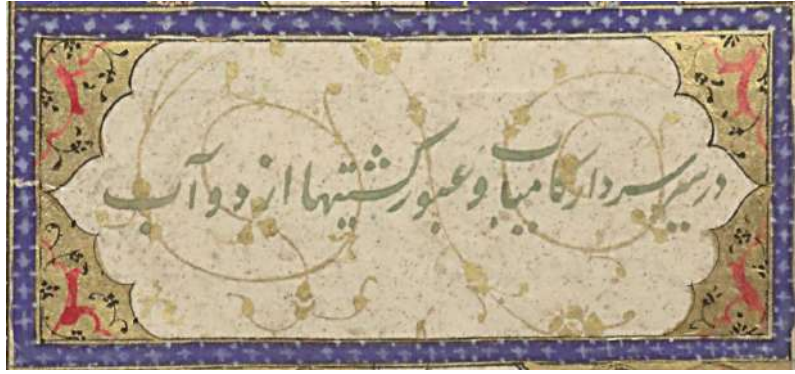 در سیر سردار کامیاب و عبور کشتیها از دو آب